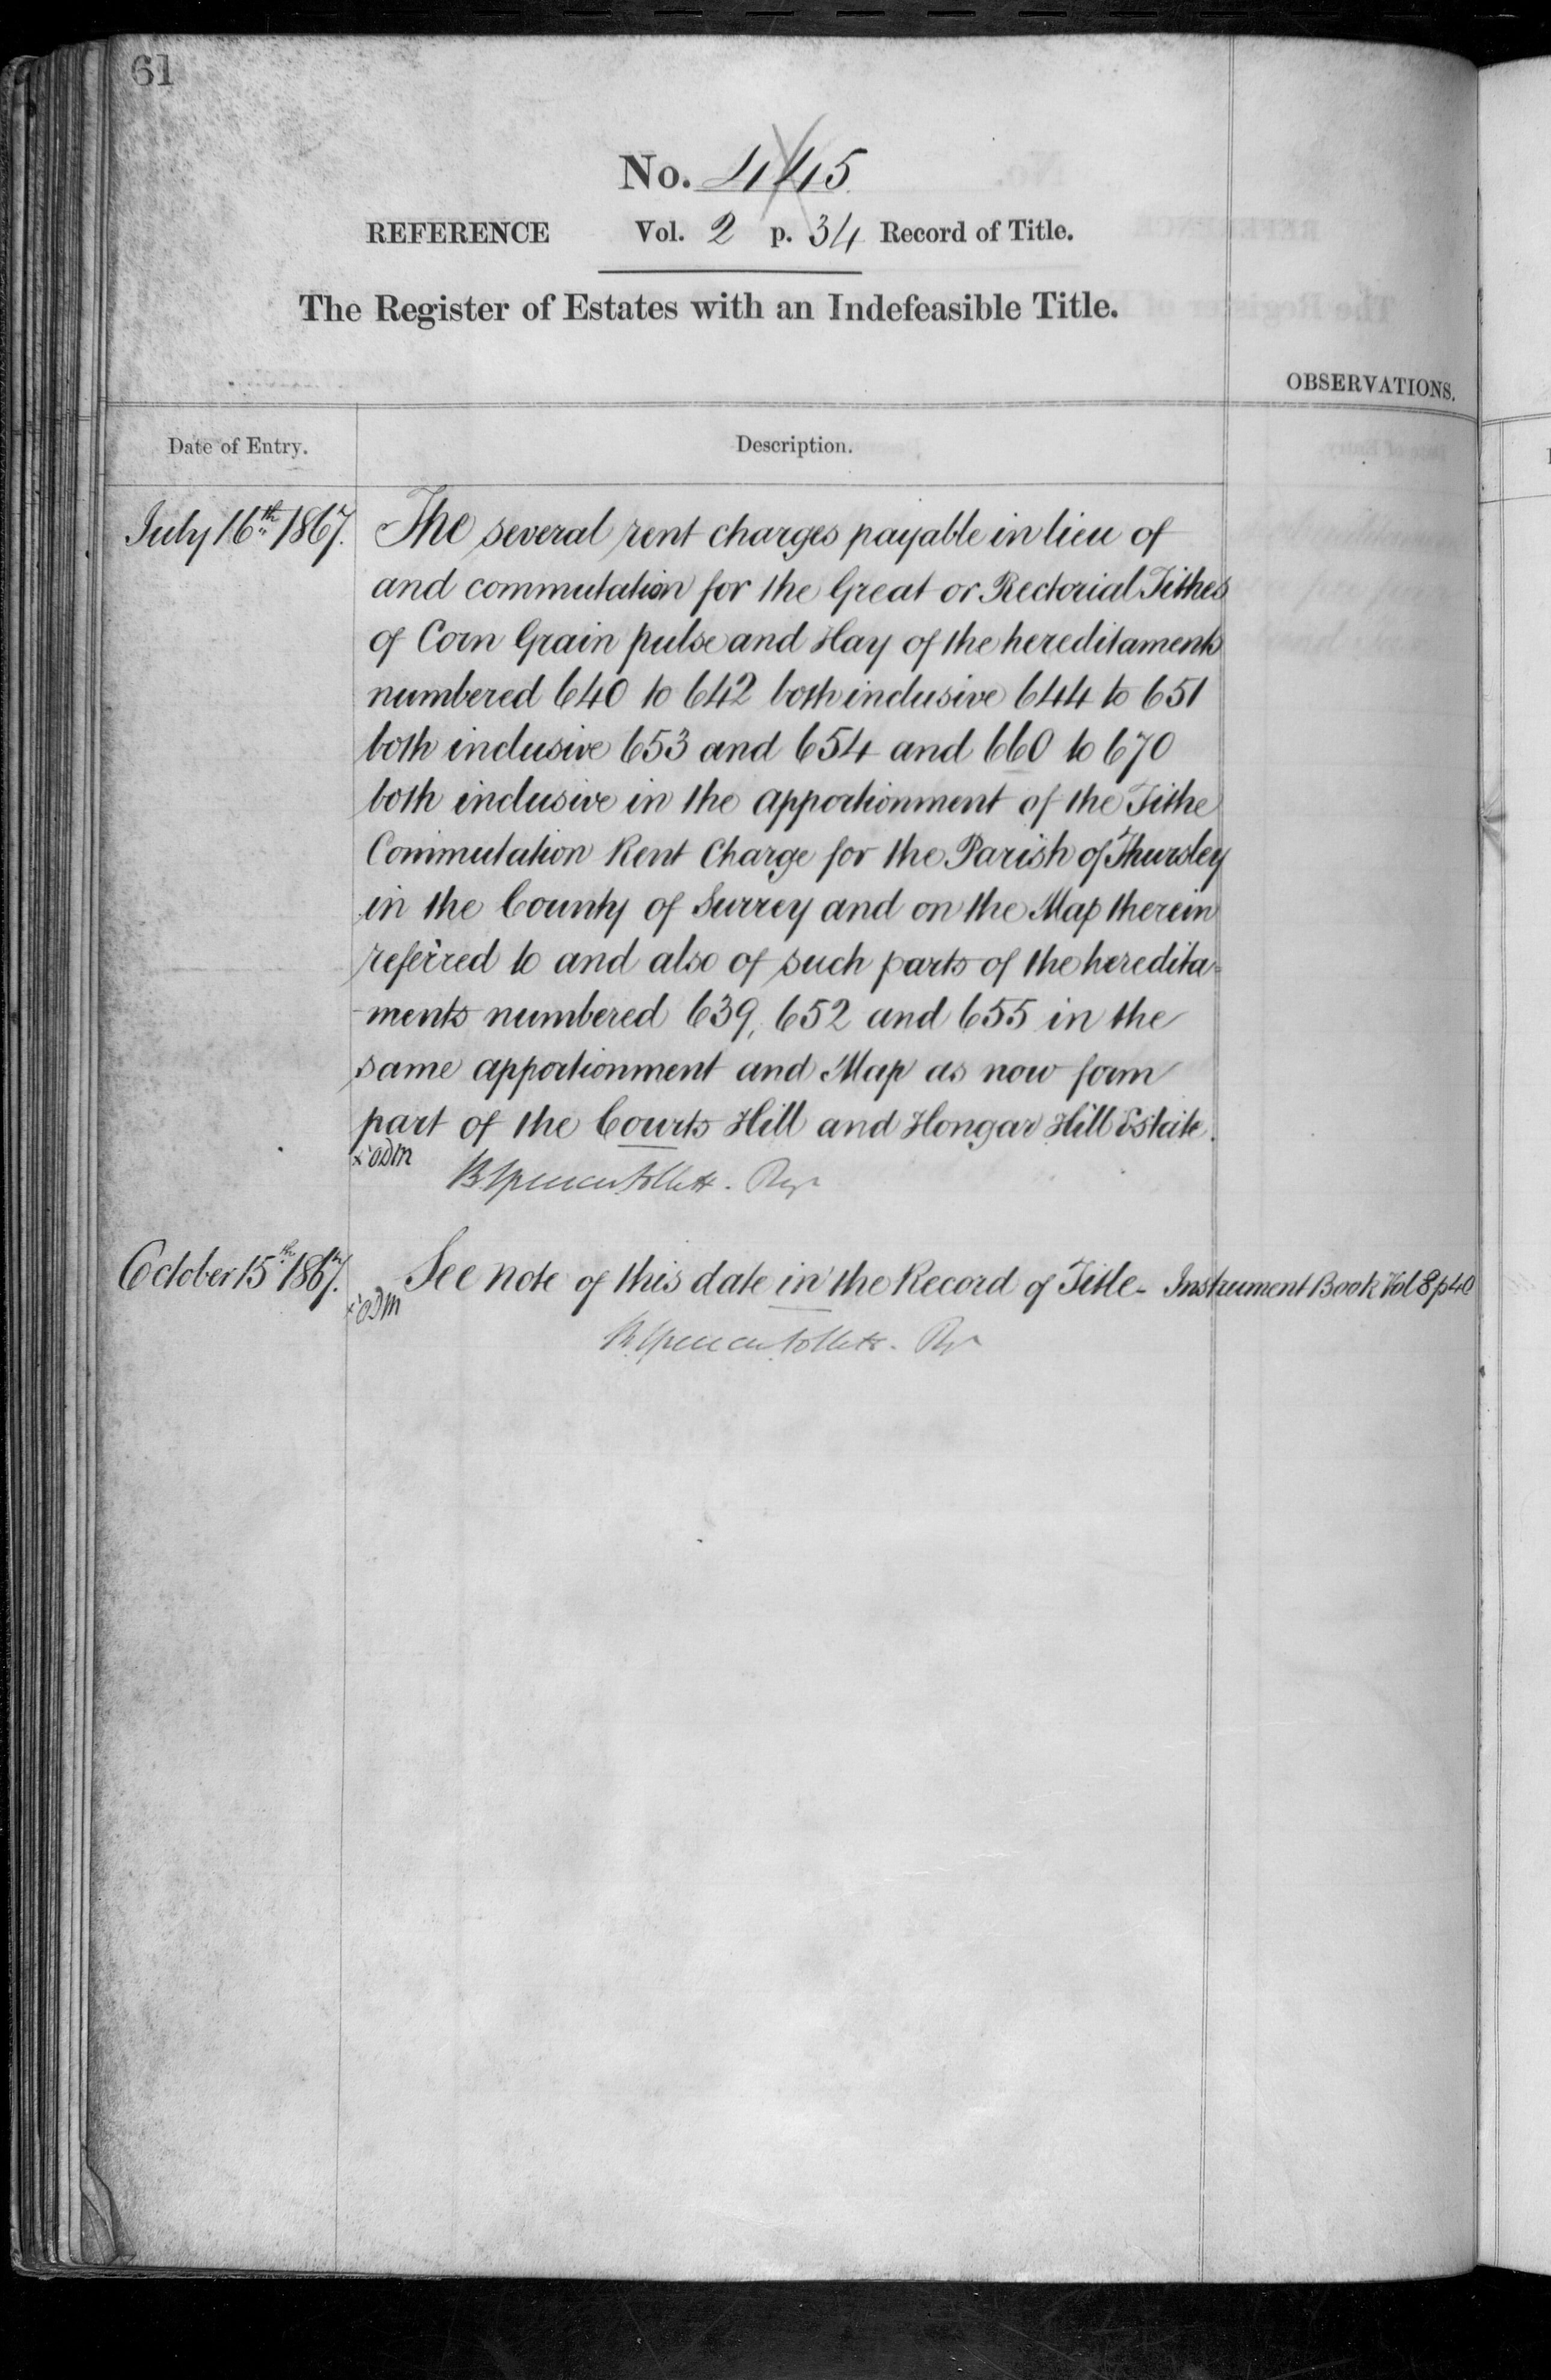 61
No. 445
REFERENCE Vol. 2 p. 34 Record of Title.
The Register of Estates with an Indefeasible Title.
OBSERVATIONS.
Date of Entry. Description.
July 16th 1867. The several rent charges payable in lieu of
and commutation for the Great or Rectorial Tithes
of Corn Grain pulse and Hay of the hereditaments
numbered 640 to 642 both inclusive 644 to 651
both inclusive 653 and 654 and 660 to 670
both inclusive in the apportionment of the Tithe
Commutation Rent Charge for the Parish of Thursley
in the County of Surrey and on the Map therein
referred to and also of such parts of the heredita-
-ments numbered 639, 652 and 655 in the
same apportionment and Map as now form
part of the Courts Hill and Hongar Hill Estate.
B Spencer Follett. Regr
October 15th 1867. See note of this date in the Record of Title - Instrument Book Vol 8 p 40
B Spencer Follett. Regr